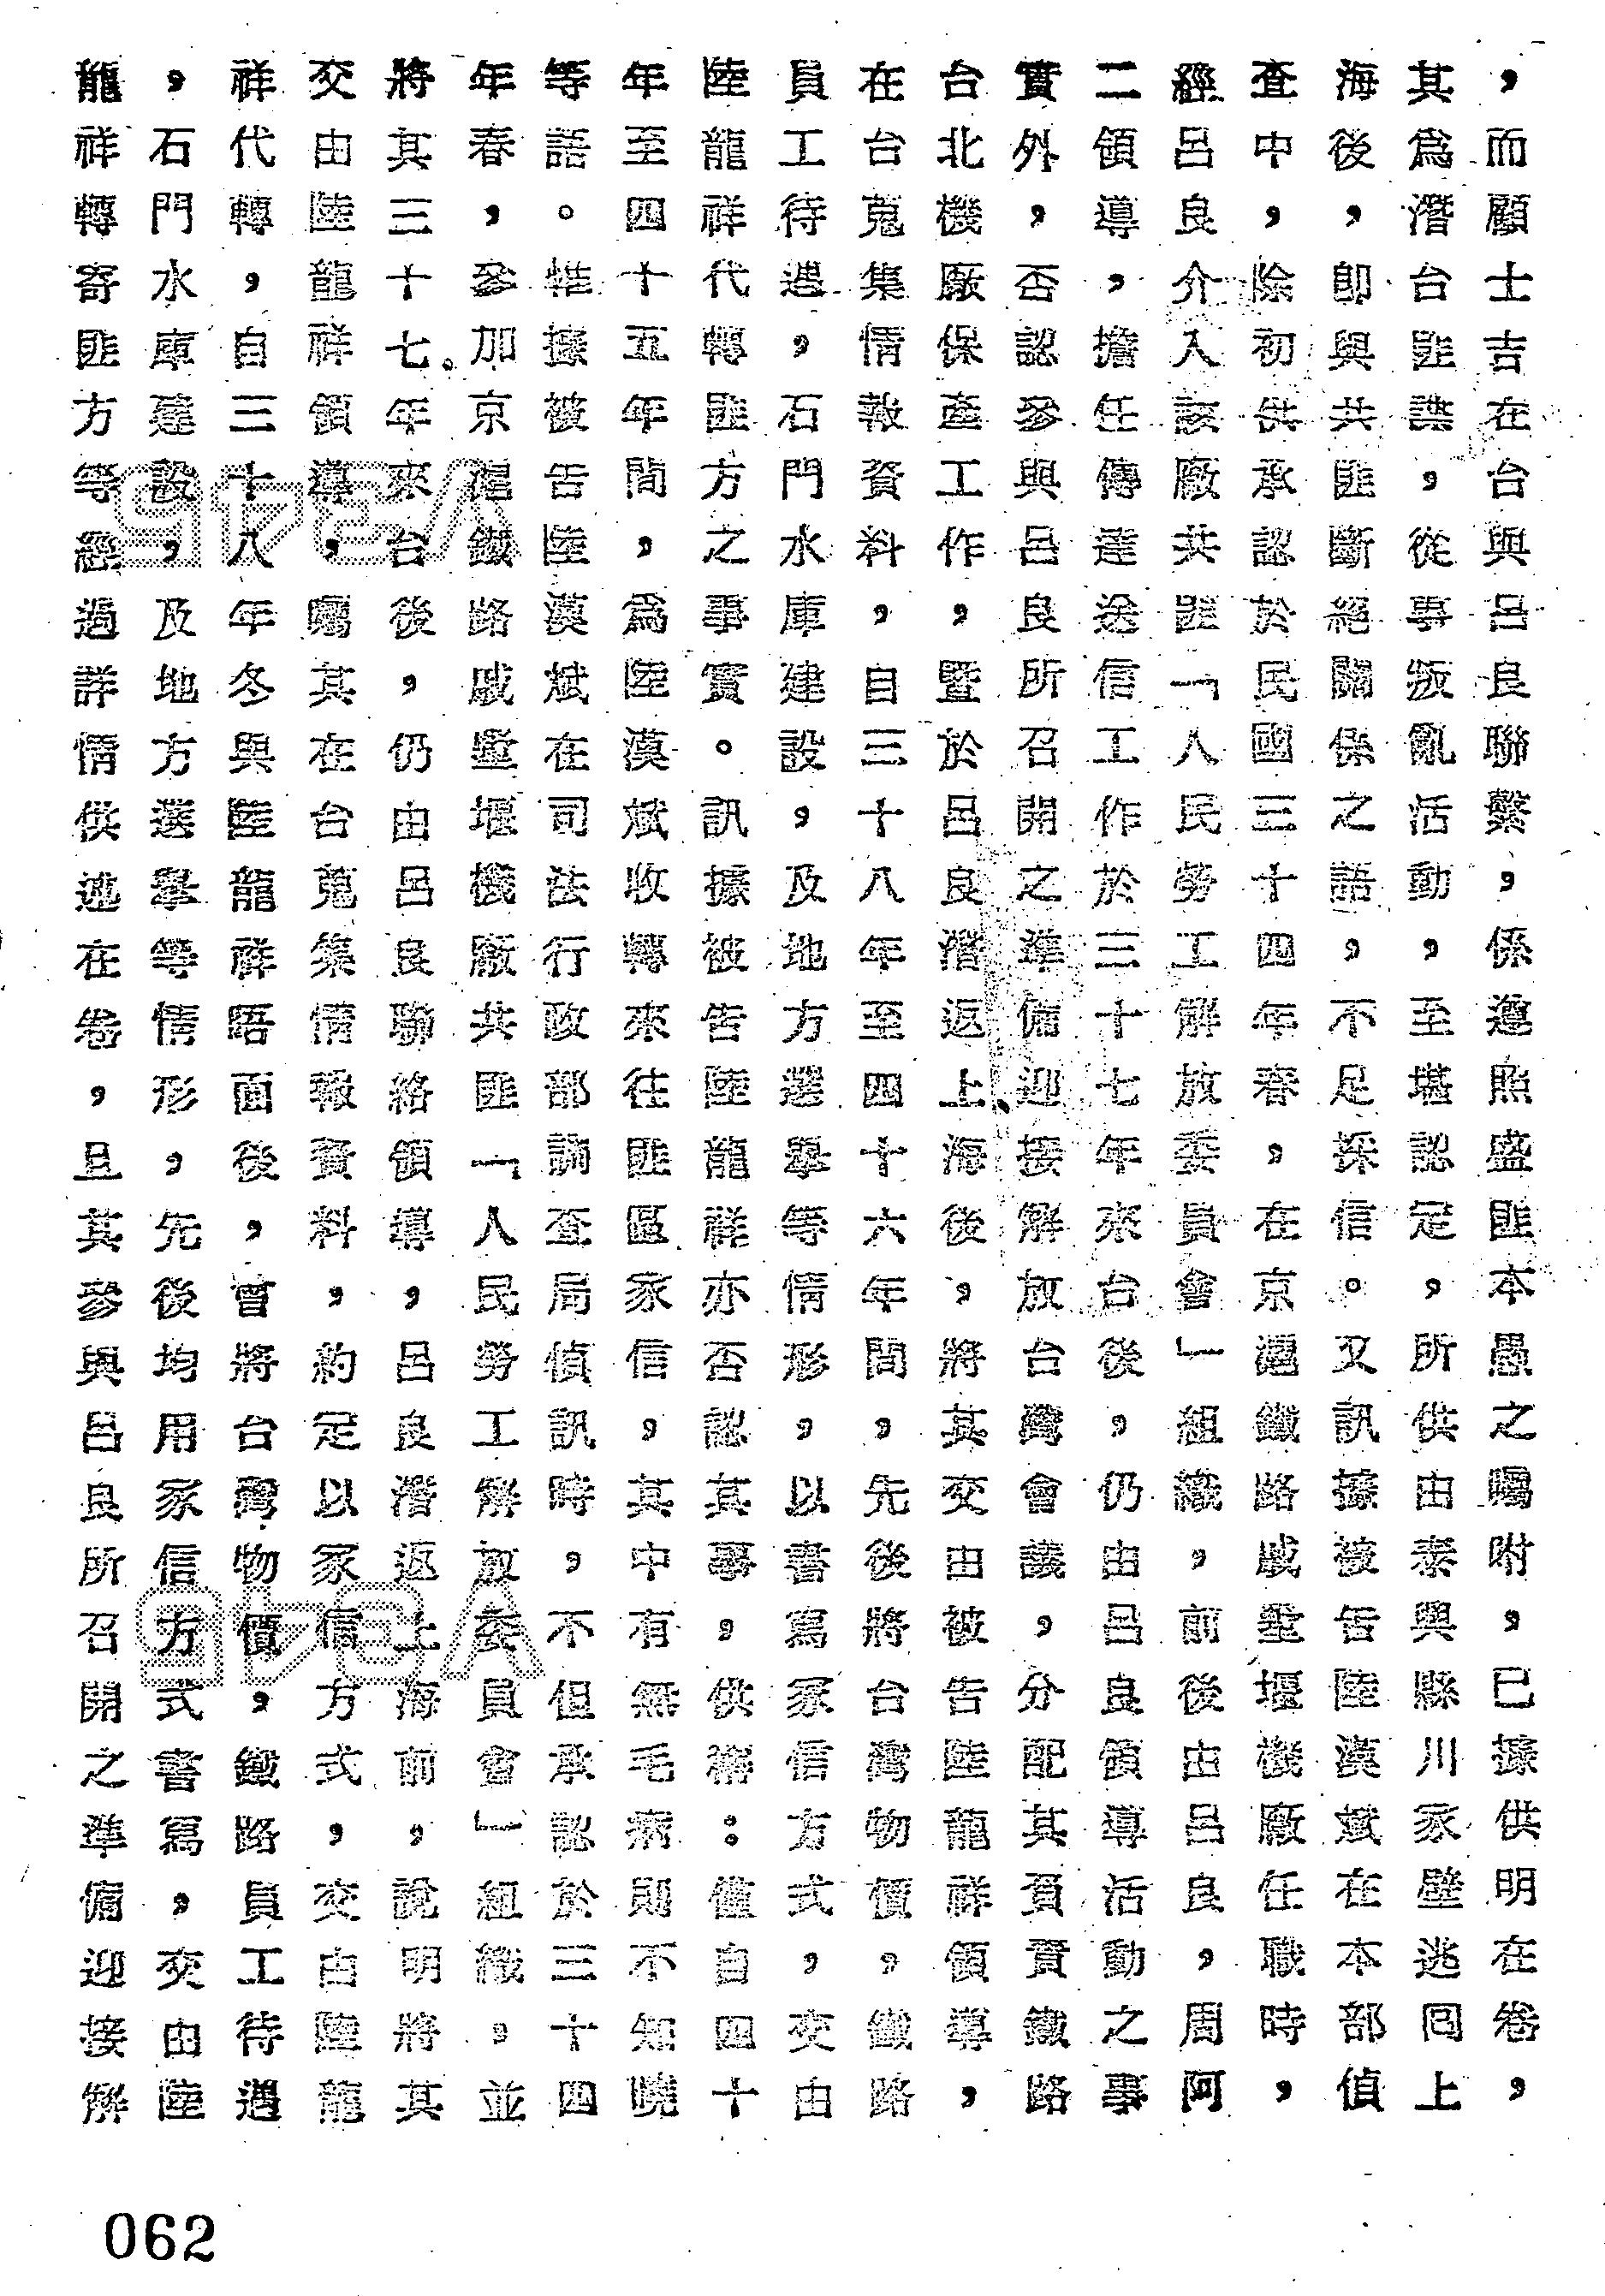 ，而顧士吉在台與呂良聯繫，係遵照盛匪本愚之囑咐，已據供明在卷，
其為潛台匪諜，從事叛亂活動，至堪認定，所供由泰興縣川家壁逃回上
海後，即與共匪斷絕關係之語，不足採信。又訊據被告陸漢斌在本部偵
查中，除初供承認於民國三十四年春，在京滬鐵路戚墅堰機廠任職時，
經呂良介入該廠共匪「人民勞工解放委員會」組織，前後由呂良，周阿
二領導，擔任傳達送信工作於三十七年來台後，仍由呂良領導活動之事
實外，否認參與呂良所召開之準備迎接解放台灣會議，分配其負責鐵路
台北機廠保產工作，暨於呂良潛返上海後，將其交由被告陸龍祥領導，
在台蒐集情報資料，自三十八年至四十六年間，先後將台灣物價，鐵路
員工待遇，石門水庫建設，及地方選舉等情形，以書寫家信方式，交由
陸龍祥代轉匪方之事實。訊據被告陸龍祥亦否認其事，供辯：僅自四十
年至四十五年間，為陸漢斌收轉來往匪區家信，其中有無毛病則不知曉
等語。惟據被告陸漢斌在司法行政部調查局偵訊時，不但承認於三十四
年春，參加京滬鐵路戚墅堰機廠共匪「人民勞工解放委員會」組織，並
將其三十七年來台後，仍由呂良聯絡領導，呂良潛返上海前，說明將其
交由陸龍祥領導，囑其在台蒐集情報資料，約定以家信方式，交由陸龍
祥代轉，自三十八年冬與陸龍祥晤面後，曾將台灣物價，鐵路員工待遇
，石門水庫建設，及地方選舉等情形，先後均用家信方式書寫，交由陸
龍祥轉寄匪方等經過詳情供述在卷，且其參與呂良所召開之準備迎接解
062